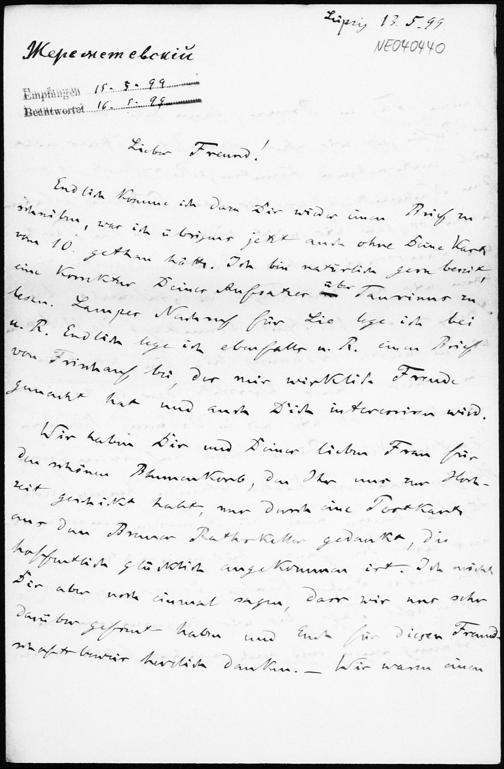 Leipzig 13.5.99
NE040440
Шереметевскій
Empfangen 15.5.99
Beantwortet 16.5.99
Lieber Freund!
Endlich komme ich dazu Dir wieder einen Brief zu
schreiben, was ich übrigens jetzt auch ohne Deine Karte
vom 10. gethan hätte. Ich bin natürlich gern bereit,
eine Korrektur Deines Aufsatzes über Taurinus zu
lesen. Nachruf für Lie lege ich bei
u. R. Endlich lege ich ebenfalls u. R. einen Brief
von Frischauf bei, der mir wirklich Freude
gemacht hat und auch Dich interessiren wird.
Wir haben Dir und Deiner lieben Frau für
den schönen Blumenkorb, den Ihr uns zur Hoch-
zeit geschickt habt, nur durch eine Postkarte
aus dem Bremer Rathskeller gedankt, die
hoffentlich glücklich angekommen ist. Ich möchte
Dir aber noch einmal sagen, dass wir uns sehr
darüber gefreut haben und Euch für diesen Freund-
schaftsbeweis herzlich danken. — Wir waren einen